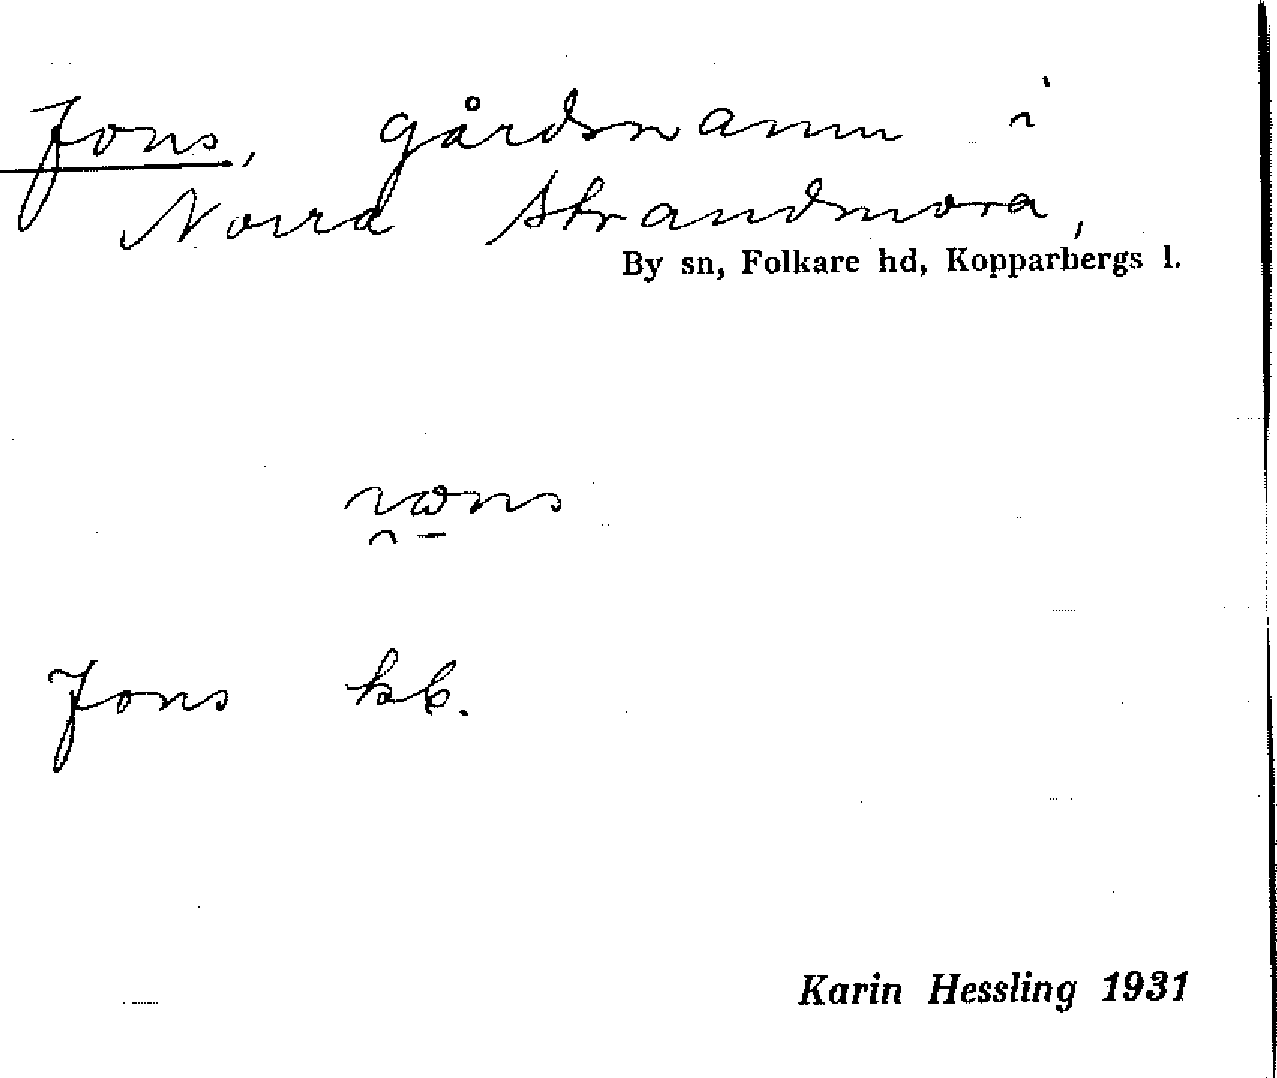 Jons, gårdsnamn i
Norra Strandmora,
By sn, Folkare hd, Kopparbergs l.
Jons kb.
Karin Hessling 1931